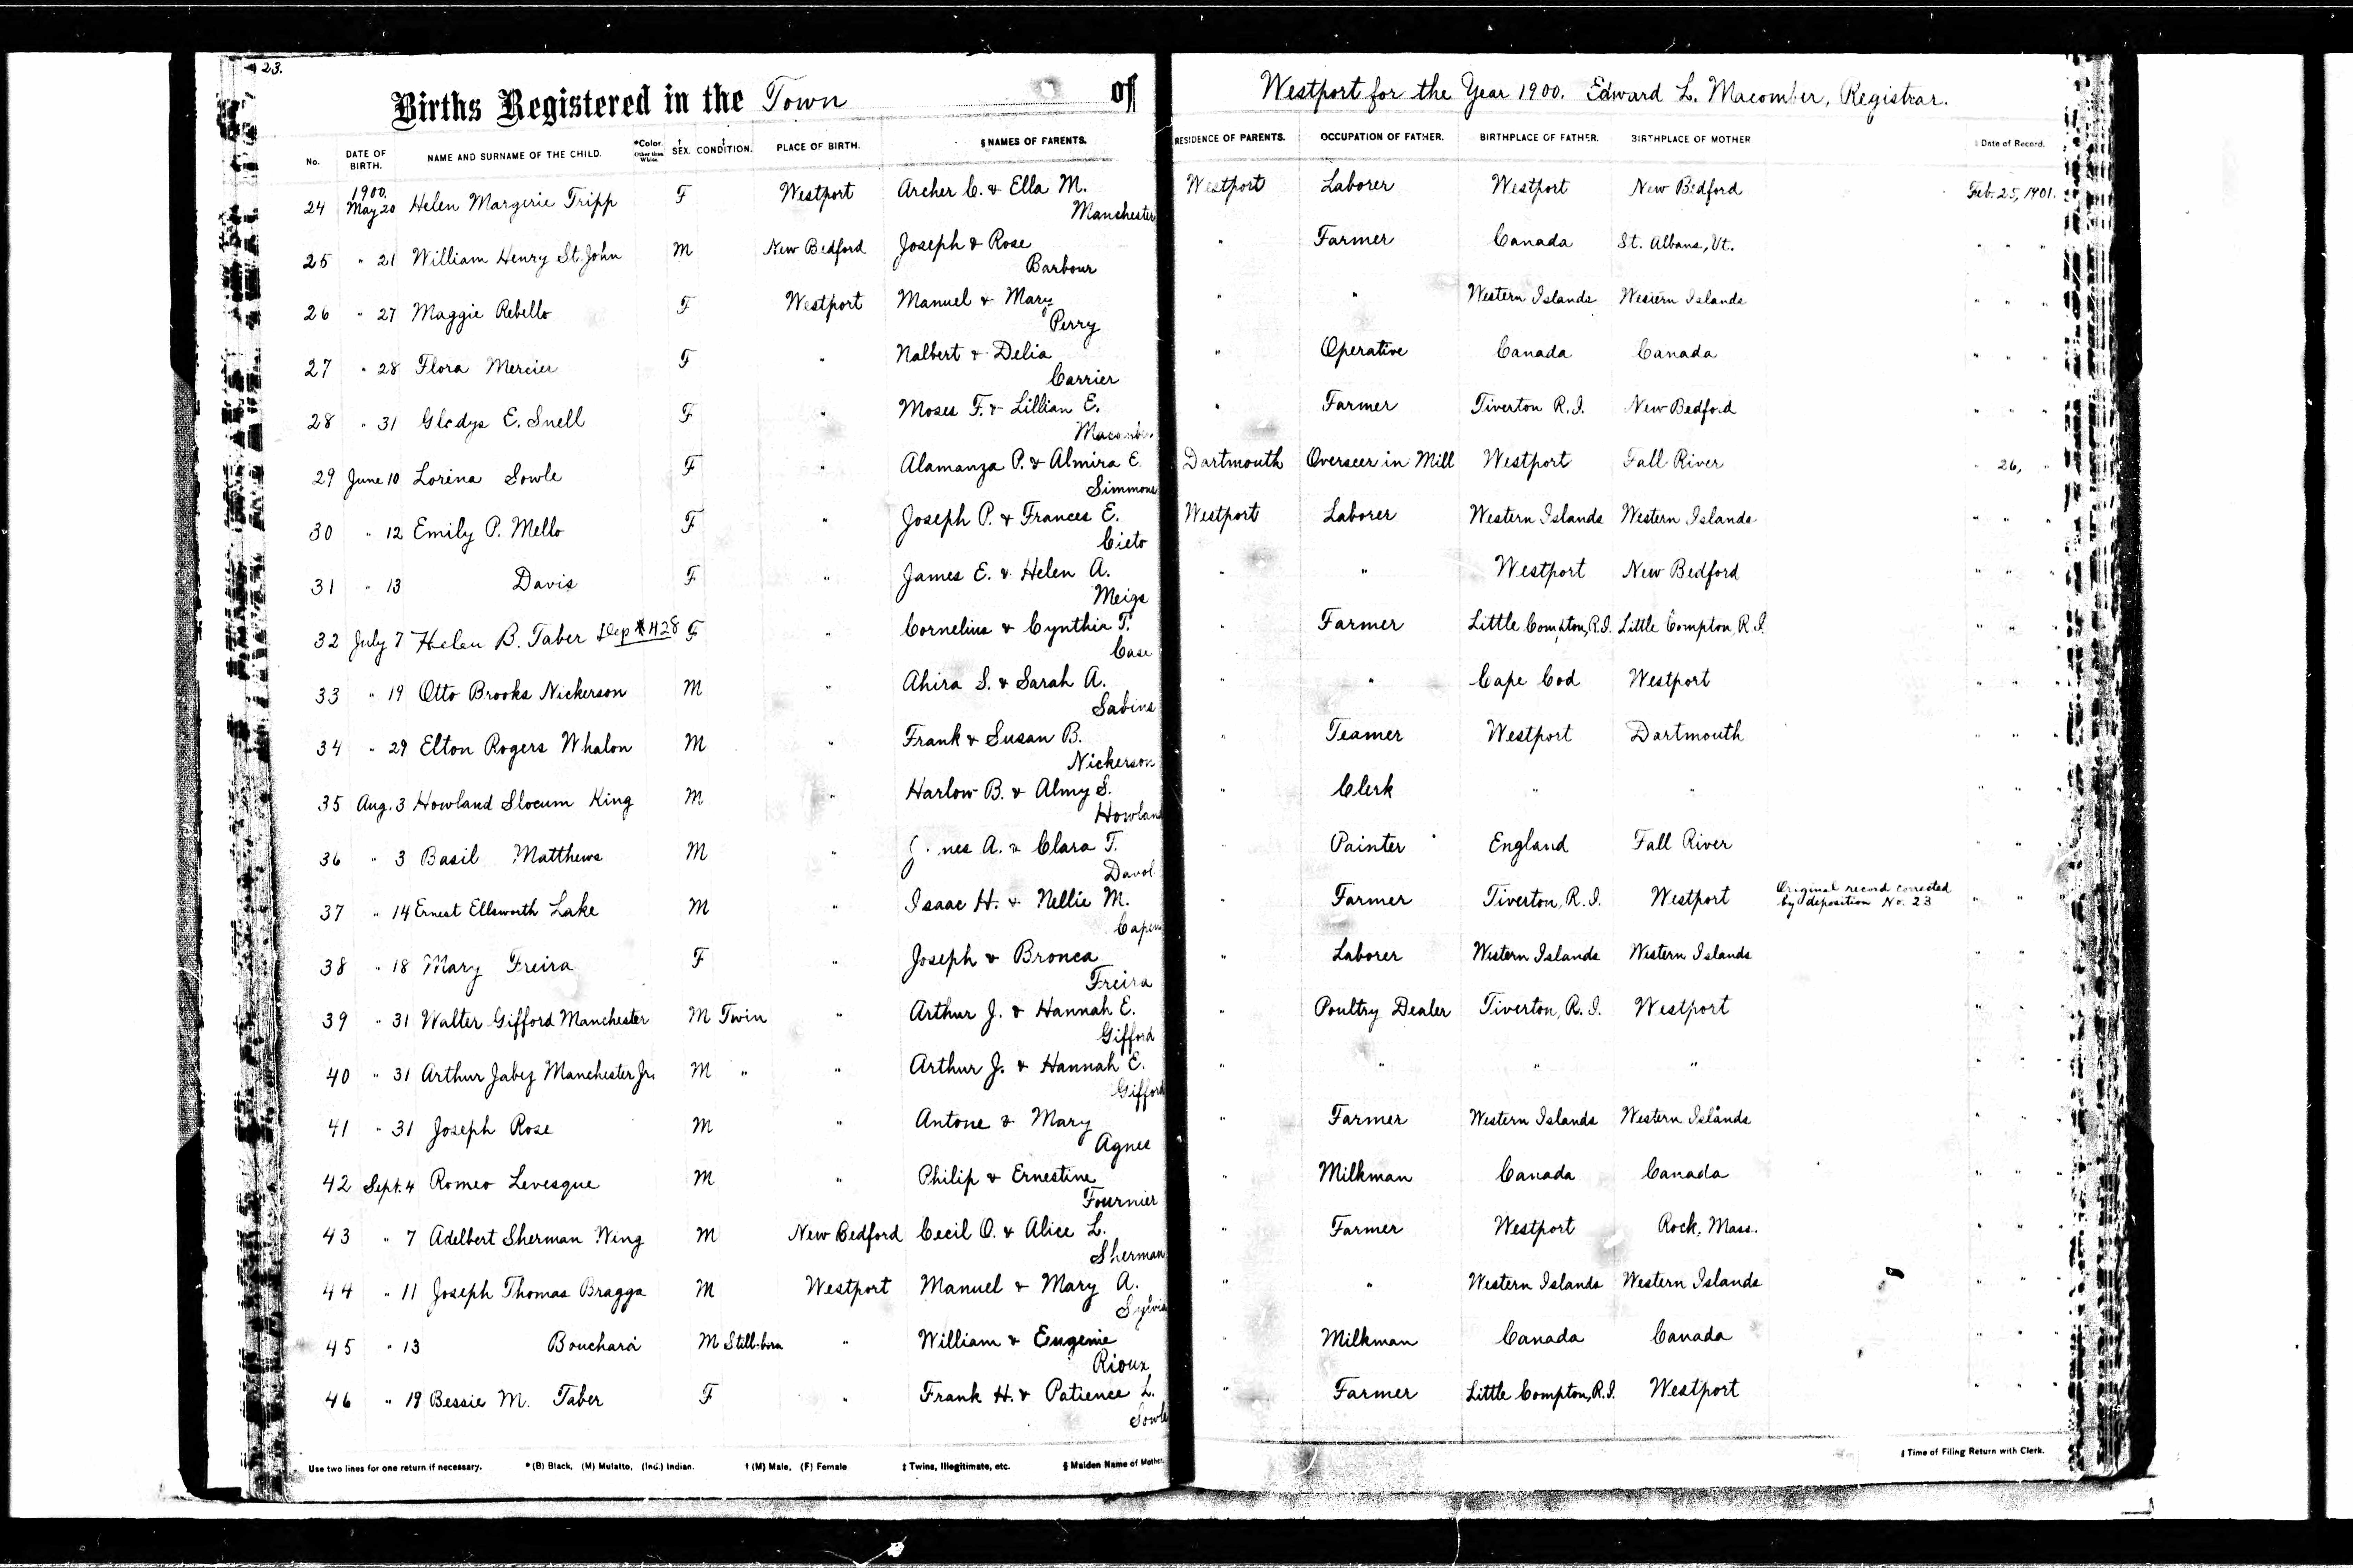 23.
Births Registered in the Town of Westport for the Year 1900. Edward L. Macomber, Registrar.
No. DATE OF BIRTH. NAME AND SURNAME OF THE CHILD. *Color. Other than White. † SEX. ‡ CONDITION. PLACE OF BIRTH. § NAMES OF PARENTS. RESIDENCE OF PARENTS. OCCUPATION OF FATHER. BIRTHPLACE OF FATHER. BIRTHPLACE OF MOTHER Date of Record.
1900.
24 May 20 Helen Margerie Tripp F Westport Archer C. & Ella M. Westport Laborer Westport New Bedford Feb. 25, 1901.
Manchester
25 " 21 William Henry St. John M New Bedford Joseph & Rose " Farmer Canada St. Albans, Vt. " " "
Barbour
26 " 27 Maggie Rebello F Westport Manuel & Mary " " Western Islands Western Islands " " "
Perry
27 " 28 Flora Mercier F " Nalbert & Delia " Operative Canada Canada " " "
Carrier
28 " 31 Gladys E. Snell F " Moses F. & Lillian E. " Farmer Tiverton R.I. New Bedford " " "
Macomber
29 June 10 Lorena Sowle F " Alamanza P. & Almira E. Dartmouth Overseer in Mill Westport Fall River " 26, "
Simmons
30 " 12 Emily P. Mello F " Joseph P. & Frances E. Westport Laborer Western Islands Western Islands " " "
Cieto
31 " 13 Davis F " James E. & Helen A. " " Westport New Bedford " " "
Meigs
32 July 7 Helen B. Taber Dep #428 F " Cornelius & Cynthia T. " Farmer Little Compton, R.I. Little Compton, R.I. " " "
Case
33 " 19 Otto Brooks Nickerson M " Ahira S. & Sarah A. " " Cape Cod Westport " " "
Sabins
34 " 29 Elton Rogers Whalon M " Frank & Susan B. " Teamer Westport Dartmouth " " "
Nickerson
35 Aug. 3 Howland Slocum King M " Harlow B. & Almy S. " Clerk " " " " "
Howland
36 " 3 Basil Matthews M " A. & Clara T. " Painter England Fall River " "
Davol
37 " 14 Ernest Ellsworth Lake M " Isaac H. & Nellie M. " Farmer Tiverton, R.I. Westport Original record corrected by deposition No. 23 " "
Capen
38 " 18 Mary Freira F " Joseph & Bronca " Laborer Western Islands Western Islands " " "
Freira
39 " 31 Walter Gifford Manchester M Twin " Arthur J. & Hannah E. " Poultry Dealer Tiverton, R.I. Westport " " "
Gifford
40 " 31 Arthur Jabez Manchester Jr. M " " Arthur J. & Hannah E. " " " " " " "
Gifford
41 " 31 Joseph Rose M " Antone & Mary " Farmer Western Islands Western Islands " " "
Agnes
42 Sept. 4 Romeo Levesque M " Philip & Ernestine " Milkman Canada Canada " " "
Fournier
43 " 7 Adelbert Sherman Wing M New Bedford Cecil O. & Alice L. " Farmer Westport Rock, Mass. " " "
Sherman
44 " 11 Joseph Thomas Bragga M Westport Manuel & Mary A. " " Western Islands Western Islands " " "
Sylvia
45 " 13 Bouchard M Still-born " William & Eugenie " Milkman Canada Canada " " "
Rioux
46 " 19 Bessie M. Taber F " Frank H. & Patience L. " Farmer Little Compton, R.I. Westport " " "
Sowle
Use two lines for one return if necessary. *(B) Black, (M) Mulatto, (Ind.) Indian. †(M) Male, (F) Female ‡ Twins, Illegitimate, etc. § Maiden Name of Mother. ‖ Time of Filing Return with Clerk.